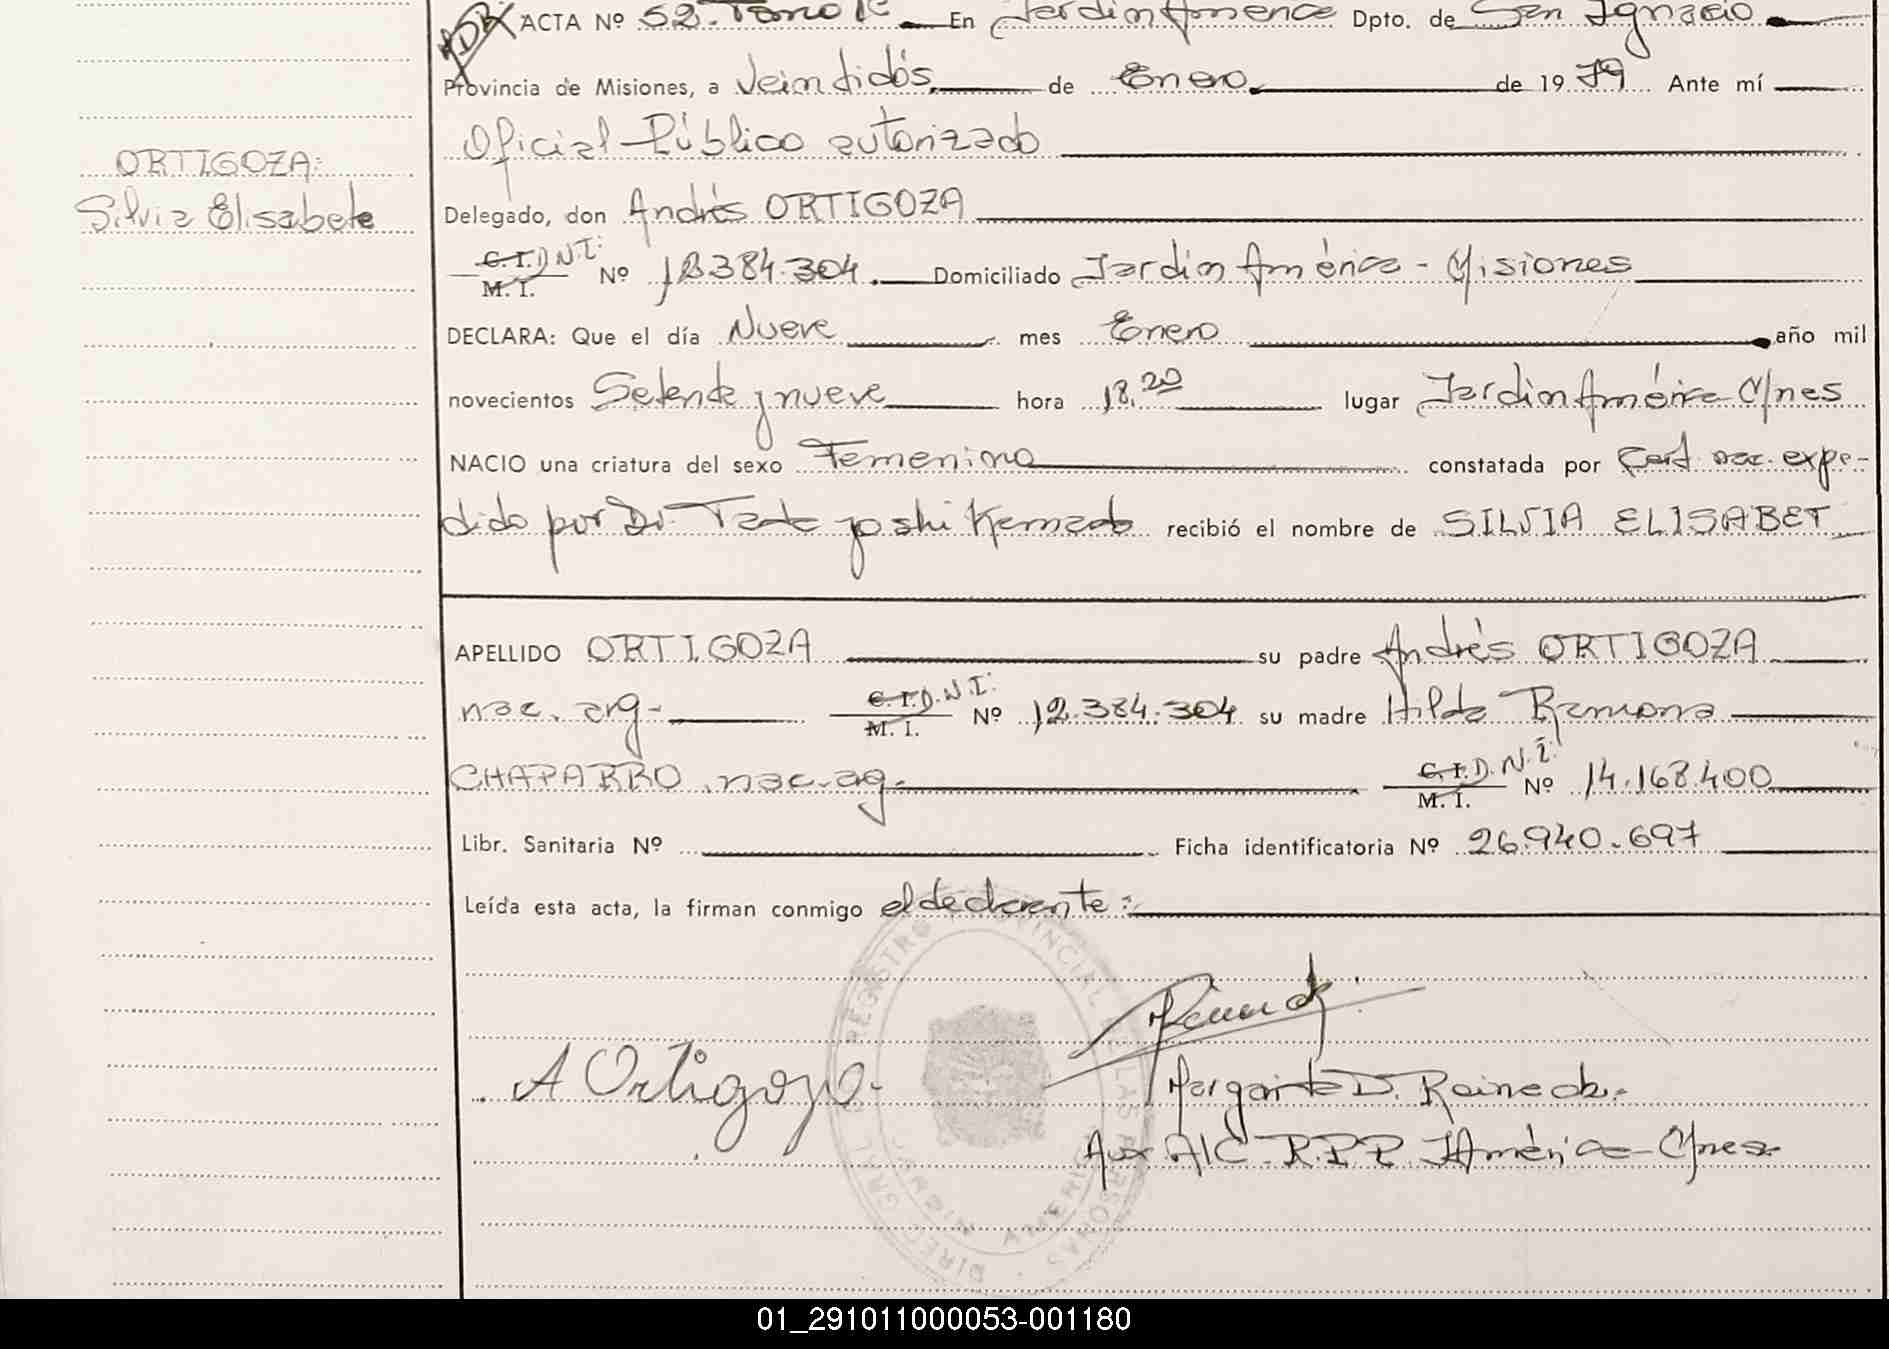 ACTA Nº 52. Tomo 1º En Jardin America Dpto. de San Ignacio
Provincia de Misiones, a Veintidós de Enero de 1979 Ante mí
Oficial Público autorizado
ORTIGOZA:
Silvia Elisabete
Delegado, don Andrés ORTIGOZA
C. I. D.N.I. M. I. Nº 12.384.304. Domiciliado Jardin América - Misiones
DECLARA: Que el día Nueve mes Enero año mil
novecientos Setenta y nueve hora 18.20 lugar Jardin América Mnes
NACIO una criatura del sexo Femenino constatada por Cert. nac. expe-
dido por Dr. joshi recibió el nombre de SILVIA ELISABET
APELLIDO ORTIGOZA su padre Andrés ORTIGOZA
nac. arg- C. I. D.N.I. M. I. Nº 12.384.304 su madre Hilda Ramona
CHAPARRO nac. ag. C. I. D.N.I. M. I. Nº 14.168.400
Libr. Sanitaria Nº Ficha identificatoria Nº 26.940.697
Leída esta acta, la firman conmigo el declarante:
A Ortigoza
Margarita D. Reineck.
Aux A/C R.P.P. J América - Mnes
DIREC. GRAL. REGISTRO PROVINCIAL LAS PERSONAS
AMERICA MISIONES
01_291011000053-001180